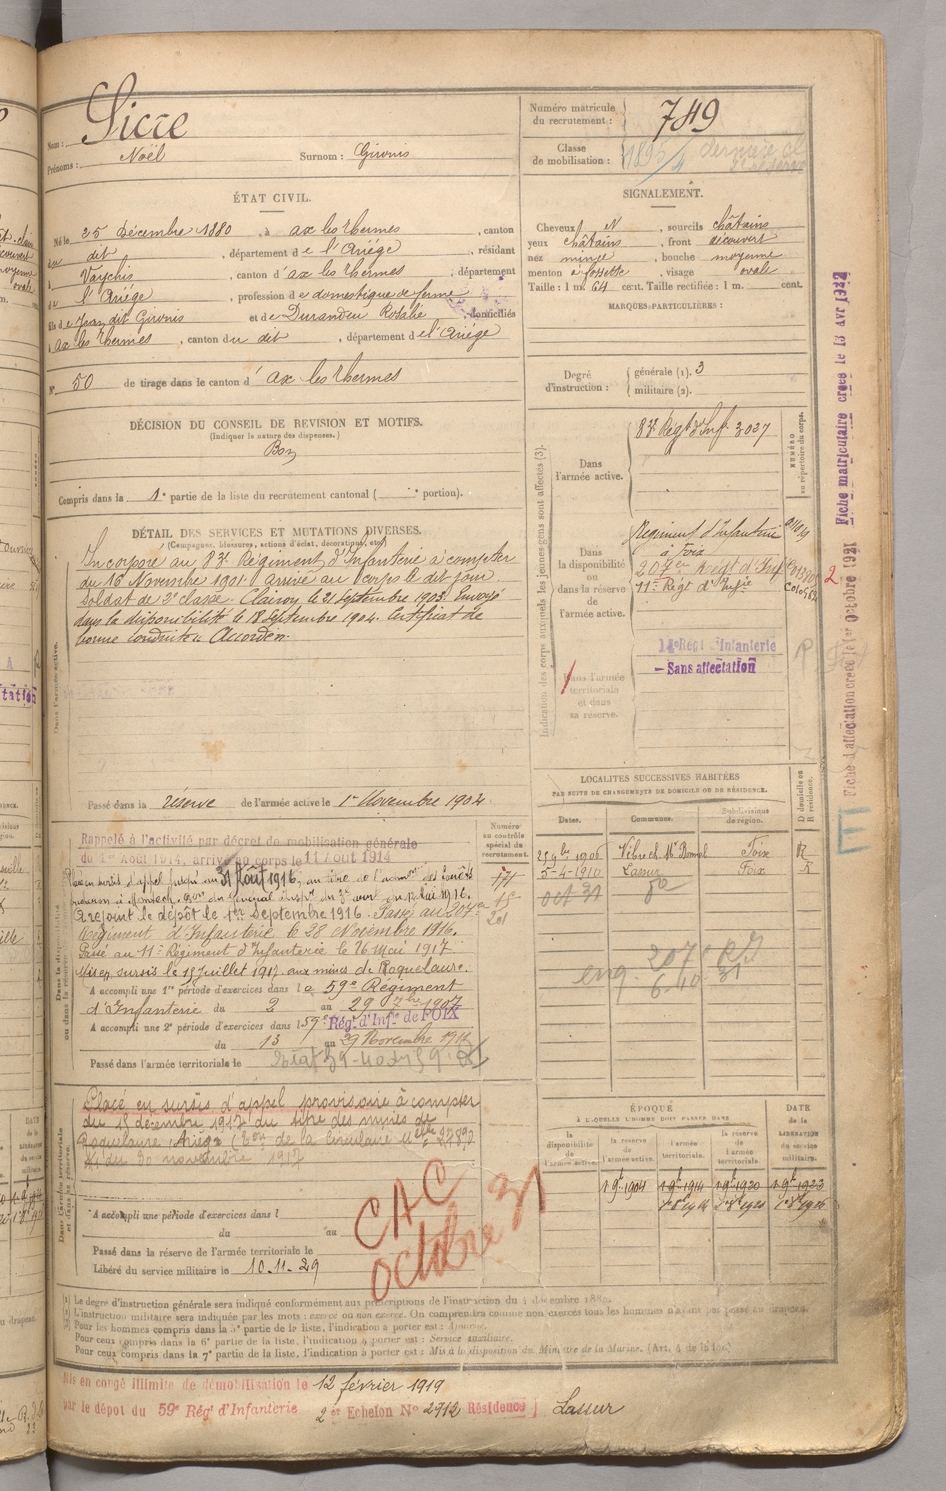 Nom : Sicre
Prénoms : Noël Surnom : Gironis
Numéro matricule du recrutement : 749
Classe de mobilisation :
ÉTAT CIVIL.
Né le 25 Décembre 1880, à ax les Thermes, canton
du dit, département de l'Ariége, résidant
à Vaychis, canton d'ax les Thermes, département
de l'Ariége, profession de domestique de ferme
fils de Jean dit Gironis et de Durandeu Rosalie, domiciliés
à ax les Thermes, canton du dit, département de l'Ariége
N° 50 de tirage dans le canton d'ax les Thermes
SIGNALEMENT.
Cheveux N, sourcils châtains
yeux châtains, front découvert
nez mince, bouche moyenne
menton à fossette, visage ovale
Taille : 1 m. 64 cent. Taille rectifiée : 1 m. cent.
MARQUES PARTICULIÈRES :
Degré d'instruction : générale (1). 3
militaire (2).
DÉCISION DU CONSEIL DE REVISION ET MOTIFS.
(Indiquer la nature des dispenses.)
Bon
Compris dans la 1e partie de la liste du recrutement cantonal ( e portion).
DÉTAIL DES SERVICES ET MUTATIONS DIVERSES.
(Campagnes, blessures, actions d'éclat, décorations, etc.)
Incorporé au 83e Régiment d'Infanterie à compter
du 16 Novembre 1901. arrivé au corps le dit jour
soldat de 2e classe. Clairon le 21 Septembre 1903. Envoyé
dans la disponibilité le 18 Septembre 1904. Certificat de
bonne conduite Accordé.
Passé dans la réserve de l'armée active le 1er Novembre 1904
Indication des corps auxquels les jeunes gens sont affectés (3).
NUMÉRO au répertoire du corps.
Dans l'armée active. 83e Régt d'Inf. 3027
Dans la disponibilité ou dans la réserve de l'armée active.
Régiment d'Infanterie
à Foix
11e Régt d'Infie
Dans l'armée territoriale et dans sa réserve.
14e Régt d'Infanterie
- Sans affectation
Fiche matriculaire créée le 13 Avr 1922
Fiche d'affectation créée le 1er Octobre 1921
Rappelé à l'activité par décret de mobilisation générale
du 1er Août 1914, arrivé au corps le 11 Août 1914
Rejoint le dépôt le 1er Septembre 1916. Passé au 207e
Régiment d'Infanterie le 28 Novembre 1916.
Passé au 11e Régiment d'Infanterie le 26 Mai 1917
Mis en sursis le 18 Juillet 1917 aux mines de Roquelaure.
A accompli une 1re période d'exercices dans le 59e Régiment
d'Infanterie du 2 au 29 7bre 1907
A accompli une 2e période d'exercices dans l 59e Régt d'Infie de FOIX
du 13 au 29 Novembre 1911
Passé dans l'armée territoriale le
Numéro au contrôle spécial du recrutement.
LOCALITÉS SUCCESSIVES HABITÉES
PAR SUITE DE CHANGEMENTS DE DOMICILE OU DE RÉSIDENCE.
Dates. Communes. Subdivisions de région. D domicile ou R résidence.
Foix R
5-4-1910 Lassur Foix R
oct 31
Placé en sursis d'appel provisoire à compter
du 18 décembre 1917 du titre des mines de
Roquelaure Ariège
du 30 novembre 1917
A accompli une période d'exercices dans l
du au
Passé dans la réserve de l'armée territoriale le
Libéré du service militaire le 10.11.29
CAC
octobre 31
ÉPOQUE
À LAQUELLE L'HOMME DOIT PASSER DANS
la disponibilité de l'armée active. la réserve de l'armée active. l'armée territoriale. la réserve de l'armée territoriale. DATE de la LIBÉRATION du service militaire.
1 9bre 1904 1 9bre 1914 1 9bre 1920 1 9bre 1923
Le degré d'instruction générale sera indiqué conformément aux prescriptions de l'instruction du 4 décembre 1889.
L'instruction militaire sera indiquée par les mots : exercé ou non exercé. On comprendra comme non exercés tous les hommes n'ayant pas passé au drapeau.
Pour les hommes compris dans la 5e partie de la liste, l'indication à porter est : Ajourné.
Pour ceux compris dans la 6e partie de la liste, l'indication à porter est : Service auxiliaire.
Pour ceux compris dans la 7e partie de la liste, l'indication à porter est : Mis à la disposition du Ministre de la Marine. (Art. 4 de la loi.)
Mis en congé illimité de démobilisation le 12 février 1919
par le dépôt du 59e Régt d'Infanterie 2er Echelon No 2912 Résidence Lassur